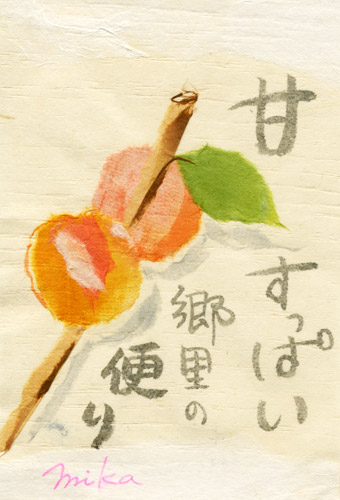 甘
すっぱい
郷里の
便り
mika